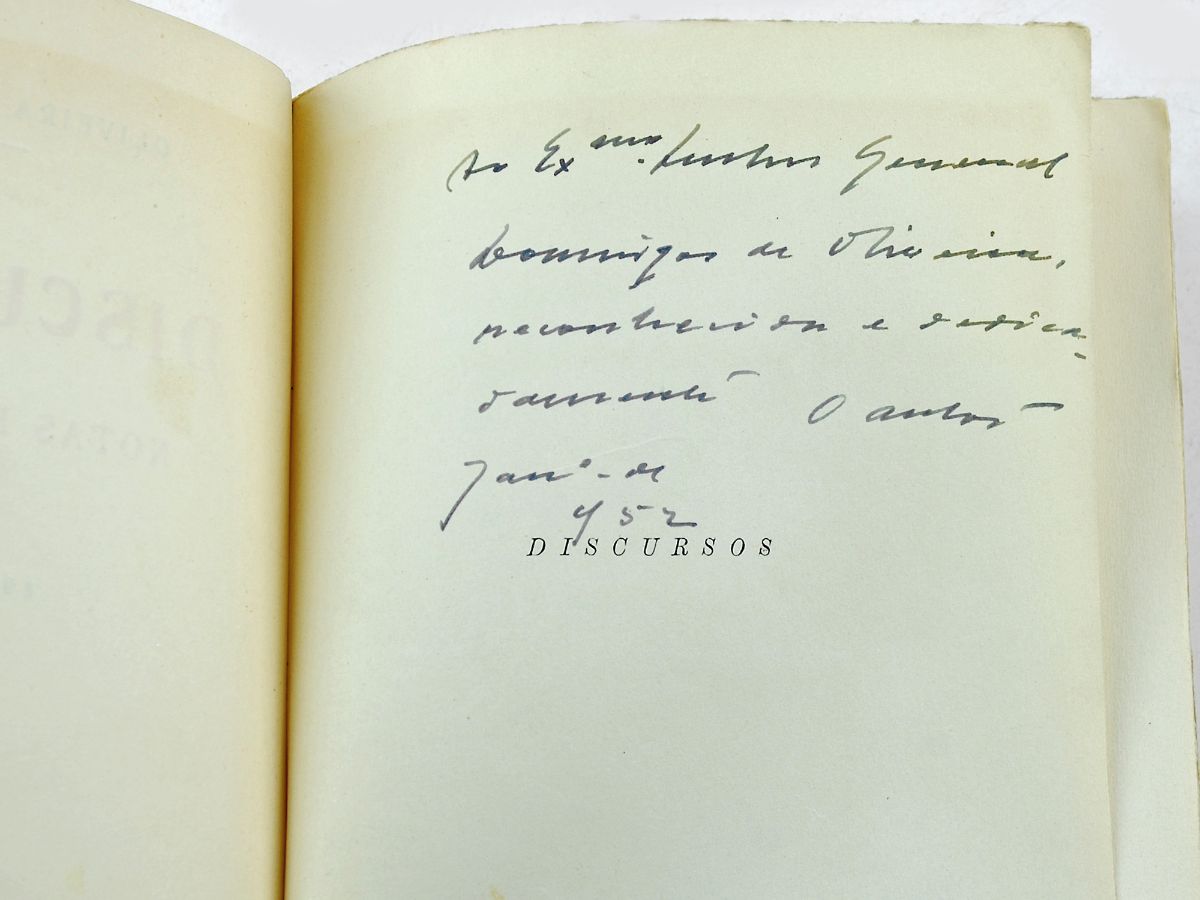 OLIVEIRA
DISCU
NOTAS
Ao Exmo. Senhor General
Domingos de Oliveira,
reconhecida e dedica-
damente O autor
Jan.º de
952
DISCURSOS